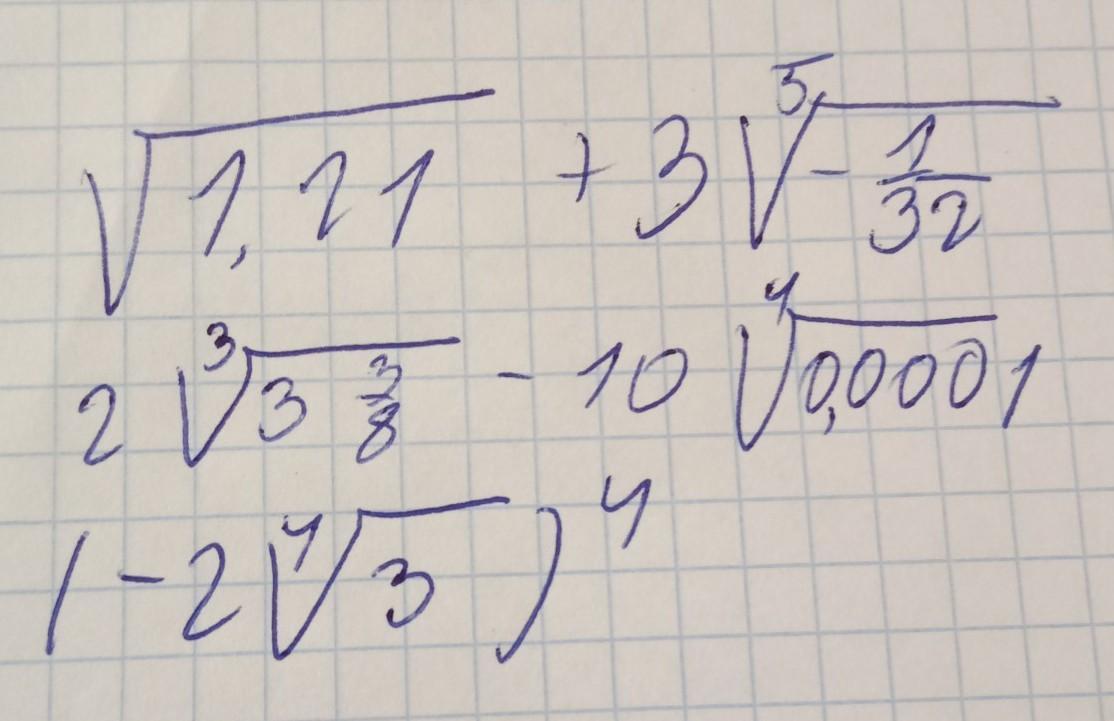 √1,21 + 3 ⁵√-1/32
2 ³√3 3/8 - 10 ⁴√0,0001
(-2 ⁴√3)⁴